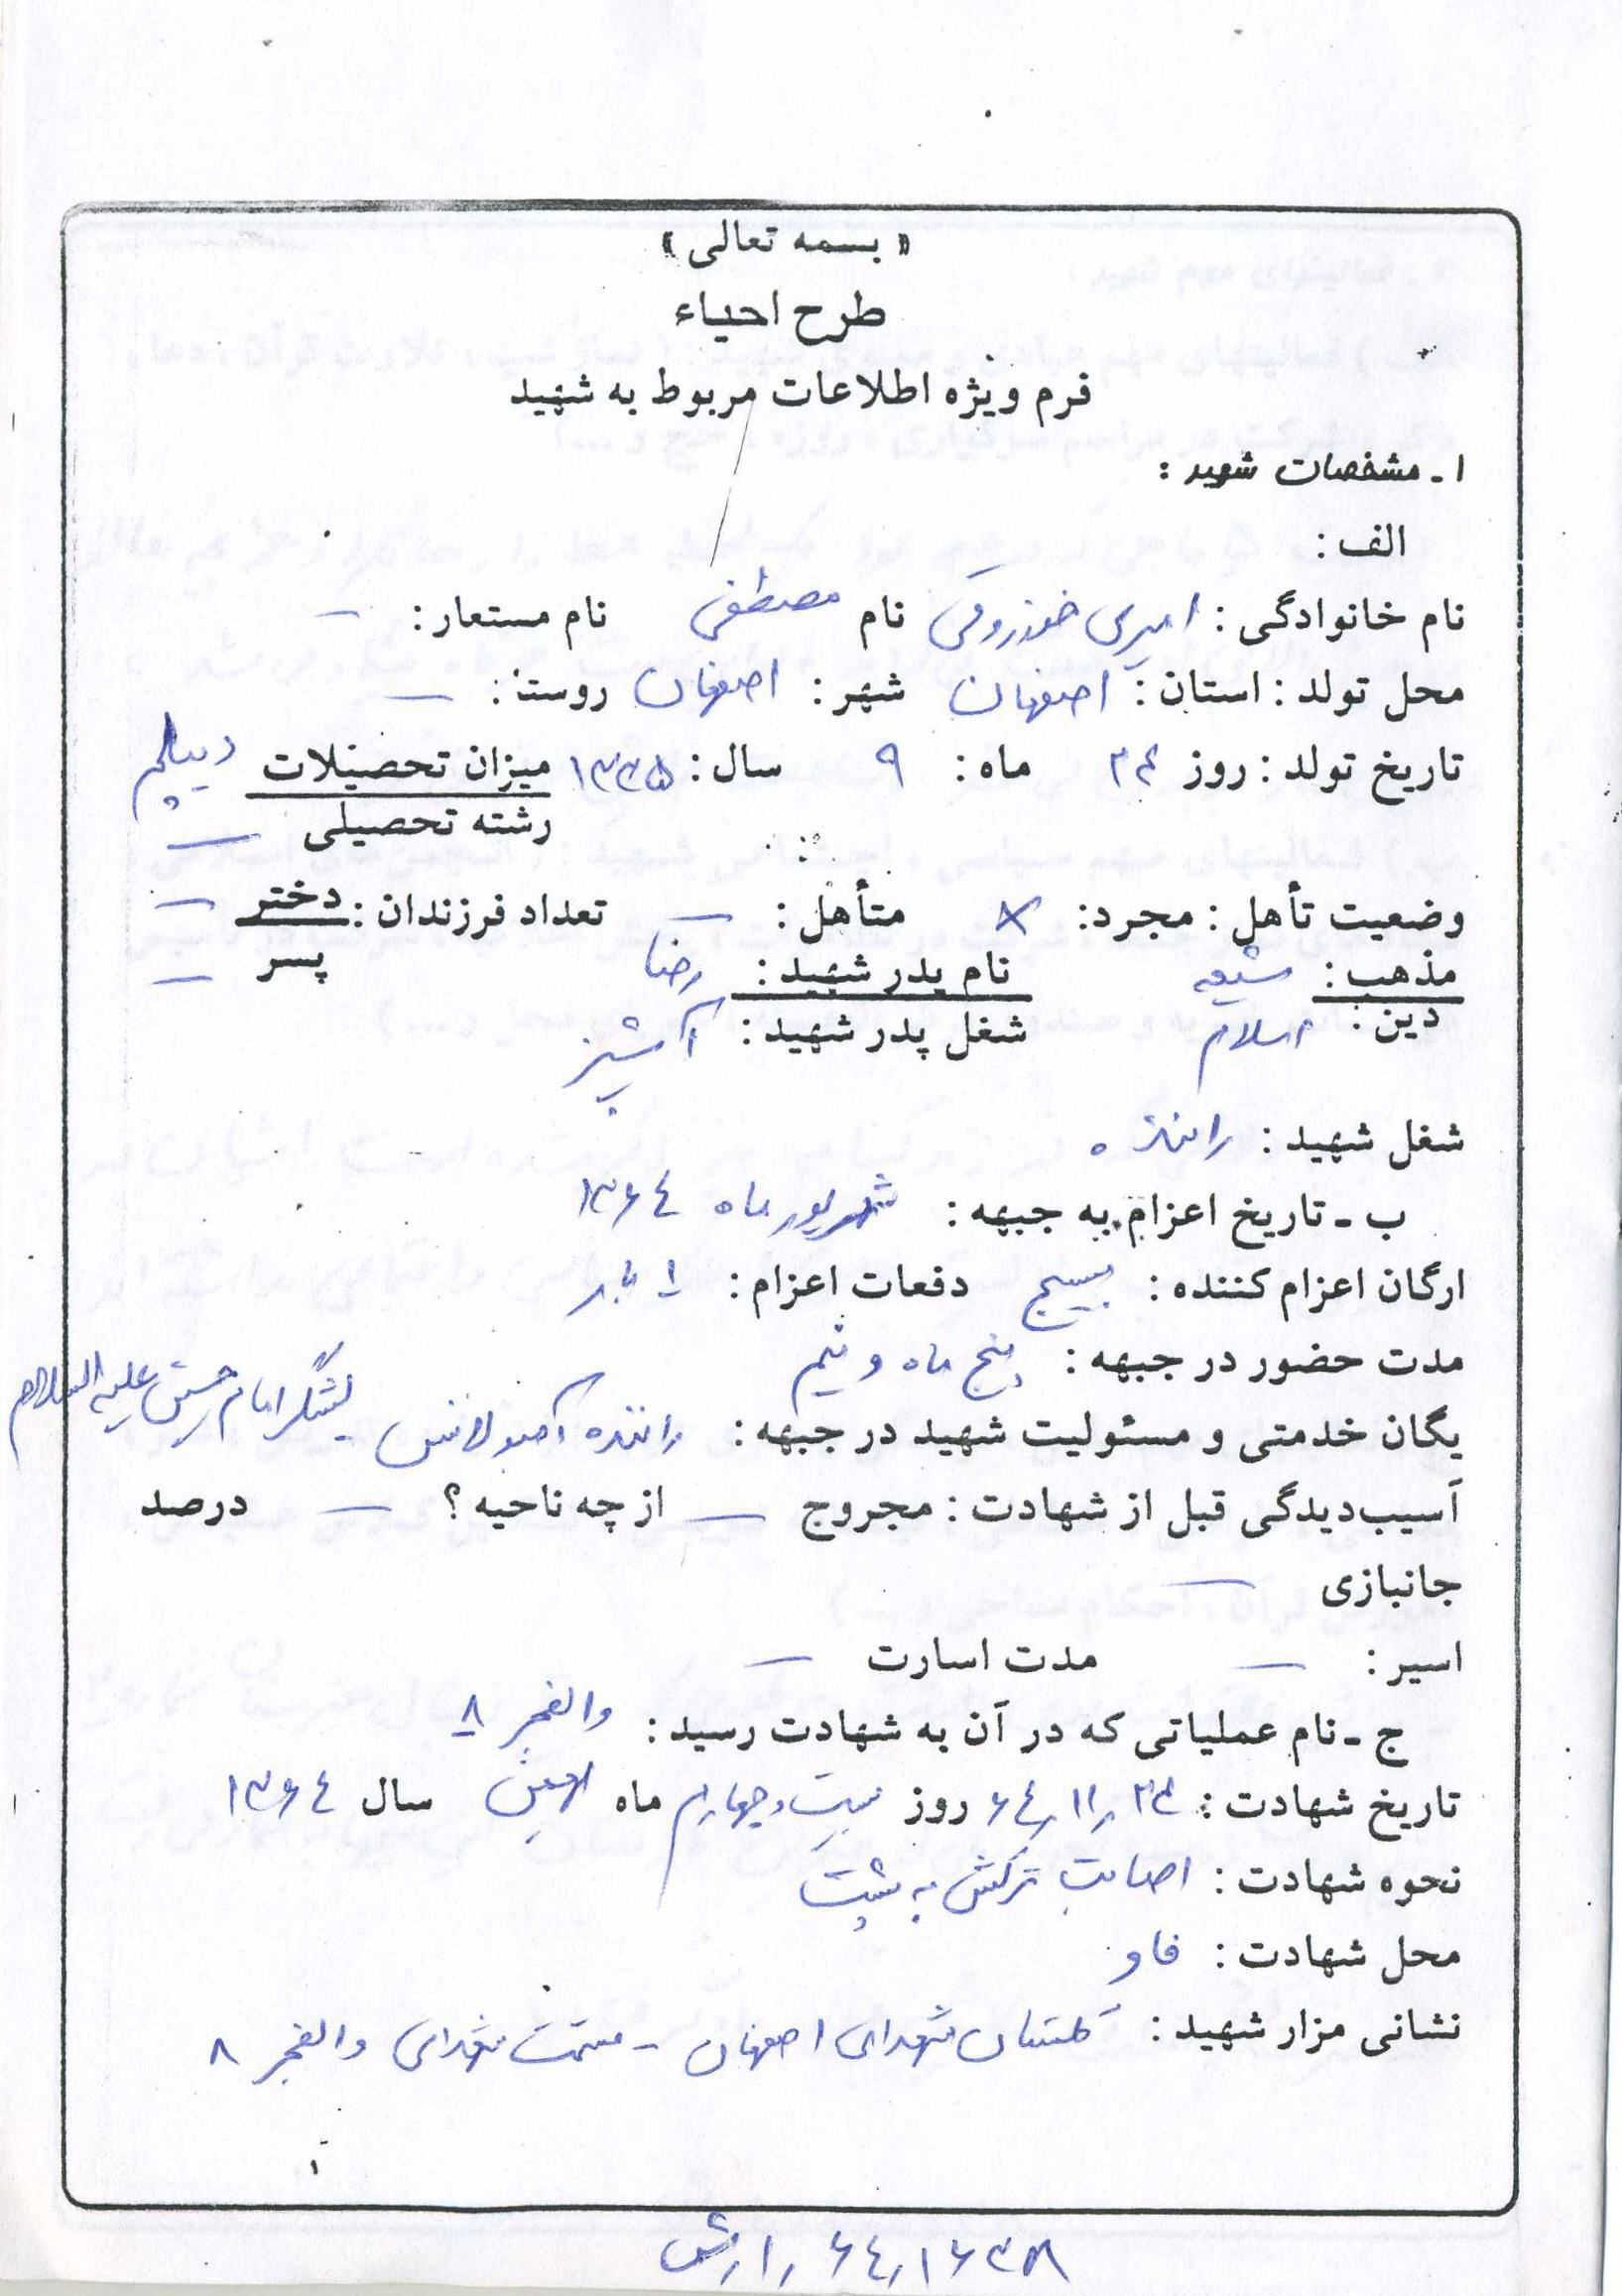 « بسمه تعالی »
طرح احیاء
فرم ویژه اطلاعات مربوط به شهید
۱ ـ مشخصات شهید :
الف :
نام خانوادگی : امیری خوزروقی نام مصطفی نام مستعار : —
محل تولد : استان : اصفهان شهر : اصفهان روستا : —
تاریخ تولد : روز ۲۴ ماه : ۹ سال : ۱۳۳۵ میزان تحصیلات دیپلم
رشته تحصیلی —
وضعیت تأهل : مجرد : × متأهل : — تعداد فرزندان : دختر —
مذهب : شیعه نام پدر شهید : رضا پسر —
دین : اسلام شغل پدر شهید : آشپز
شغل شهید : راننده
ب ـ تاریخ اعزام به جبهه : شهریور ماه ۱۳۶۴
ارگان اعزام کننده : بسیج دفعات اعزام : ۱ بار
مدت حضور در جبهه : پنج ماه و نیم
یگان خدمتی و مسئولیت شهید در جبهه : راننده آمبولانس لشگر امام حسین علیه السلام
آسیب‌دیدگی قبل از شهادت : مجروح — از چه ناحیه ؟ — درصد
جانبازی —
اسیر : — مدت اسارت —
ج ـ نام عملیاتی که در آن به شهادت رسید : والفجر ۸
تاریخ شهادت : ۲۴ ر ۱۱ ر ۶۴ روز بیست و چهارم ماه بهمن سال ۱۳۶۴
نحوه شهادت : اصابت ترکش به پشت
محل شهادت : فاو
نشانی مزار شهید : گلستان شهدای اصفهان - قسمت شهدای والفجر ۸
۱
۶۴ر۱۶۳۸ ر ا ر ش